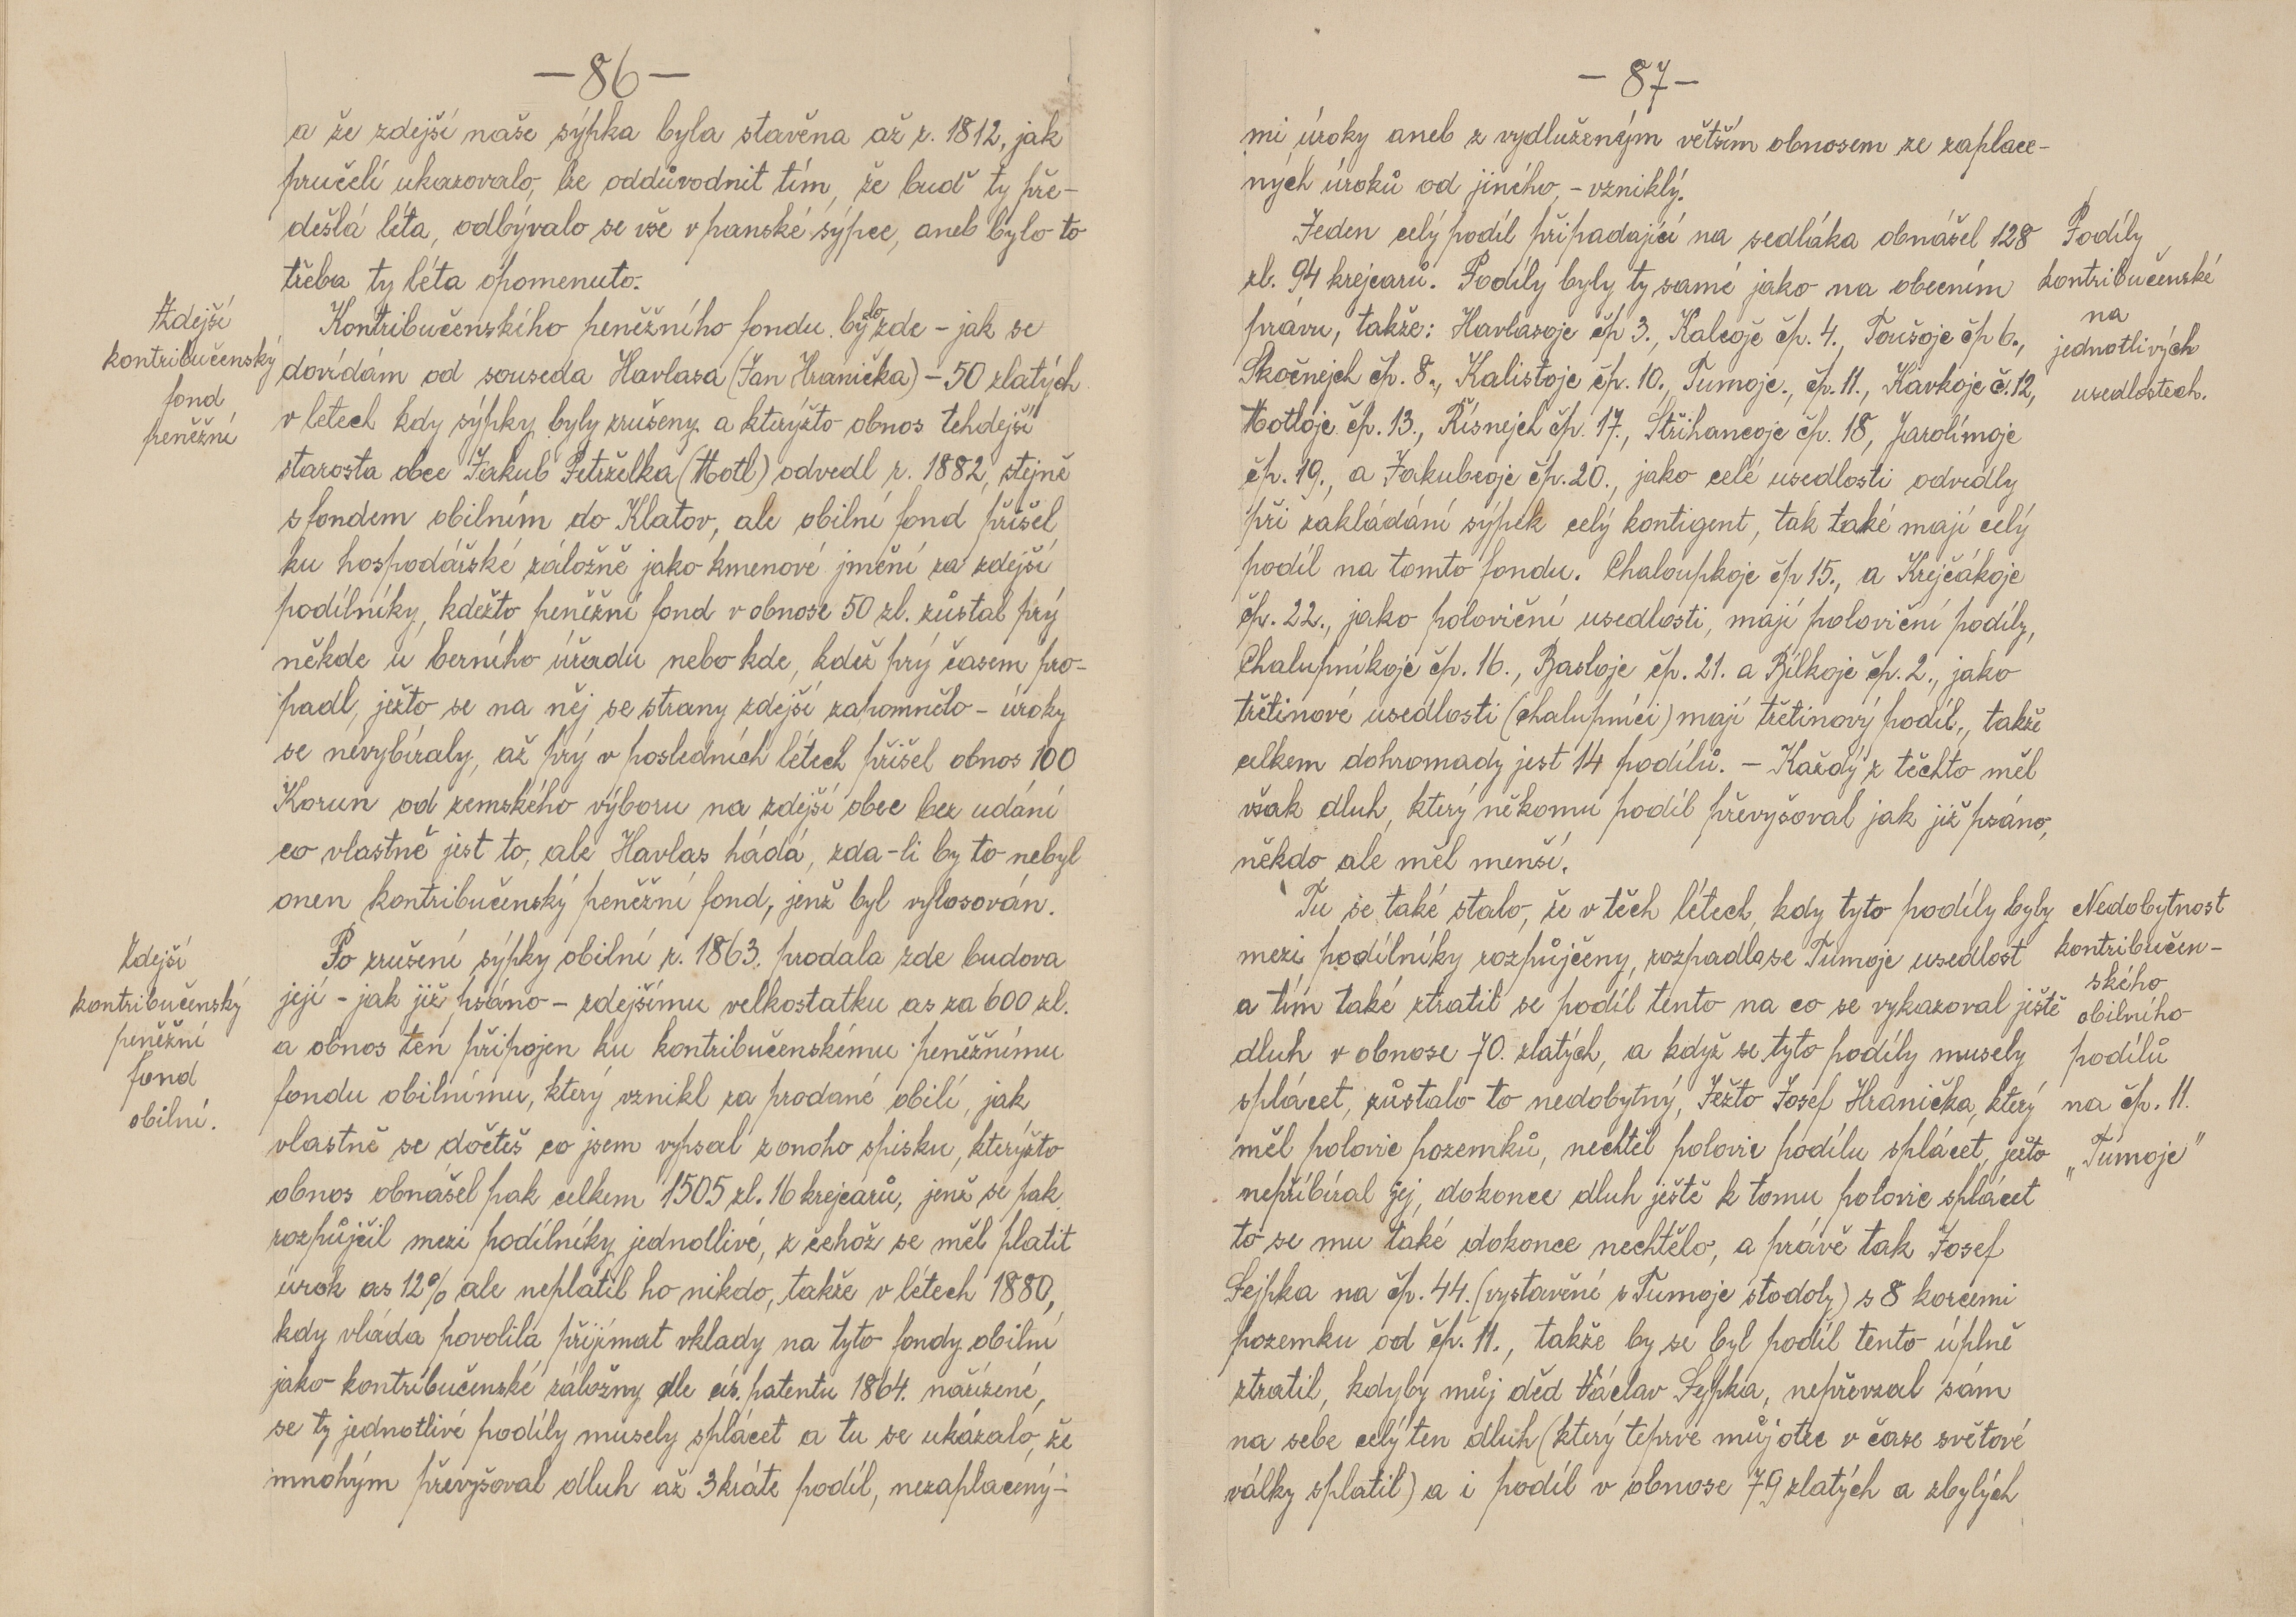 — 86 —
a že zdejší naše sýpka byla stavěna až r. 1812, jak
pručelí ukazovalo, lze oddůvodnit tím, že buď ty pře-
dešlá léta, odbývalo se vše v panské sýpce, aneb bylo to
třeba ty léta opomenuto.
Zdejší
kontribučenský
fond
peněžní
Kontribučenského peněžního fondu bylo zde - jak se
dovídám od souseda Havlasa (Jan Hranička) - 50 zlatých
v letech kdy sýpky byly zrušeny a kterýžto obnos tehdejší
starosta obce Jakub Petrželka (Motl) odvedl r. 1882, stejně
s fondem obilním do Klatov, ale obilní fond přišel
ku hospodářské záložně jako kmenové jmění za zdejší
podílníky, kdežto peněžní fond v obnose 50 zl. zůstal prý
někde u berního úřadu nebo kde, kdež prý časem pro-
padl, ježto se na něj se strany zdejší zapomnělo - úroky
se nevybíraly, až prý v posledních létech přišel obnos 100
Korun od zemského výboru na zdejší obec bez udání
co vlastně jest to, ale Havlas hádá, zda-li by to nebyl
onen kontribučenský peněžní fond, jenž byl vylosován.
Zdejší
kontribučenský
peněžní
fond
obilní.
Po zrušení sýpky obilní r. 1863. prodala zde budova
její - jak již psáno - zdejšímu velkostatku as za 600 zl.
a obnos ten připojen ku kontribučenskému peněžnímu
fondu obilnímu, který vznikl za prodané obilí, jak
vlastně se dočteš co jsem vypsal z onoho spisku, kterýžto
obnos obnášel pak celkem 1505 zl. 16 krejcarů, jenž se pak
rozpůjčil mezi podílníky jednotlivé, z čehož se měl platit
úrok as 12% ale neplatil ho nikdo, takže v létech 1880,
kdy vláda povolila přijímat vklady na tyto fondy obilní
jako kontribučenské záložny dle cís. patentu 1864. nařízené,
se ty jednotlivé podíly musely splácet a tu se ukázalo, že
mnohým převyšoval dluh až 3 kráte podíl, nezaplacený-
— 87 —
mi úroky aneb z vydluženým větším obnosem ze zaplace-
ných úroků od jiného, - vzniklý.
Jeden celý podíl připadající na sedláka obnášel 128
zl. 94 krejcarů. Podíly byly ty samé jako na obecním
právu, takže: Havlasoje čp 3., Kalcoje čp. 4., Toušoje čp 6.,
Skočnejch čp. 8., Kalistoje čp. 10., Tumoje., čp. 11., Kavkoje č. 12,
Motloje čp. 13., Řísnejch čp. 17., Střihancoje čp. 18, Jarolímoje
čp. 19., a Jakubcoje čp. 20., jako celé usedlosti odvedly
při zakládání sýpek celý kontigent, tak také mají celý
podíl na tomto fondu. Chaloupkoje čp 15., a Krejčákoje
čp. 22., jako poloviční usedlosti, mají poloviční podíly,
Chalupníkoje čp. 16., Bastoje čp. 21. a Bílkoje čp. 2., jako
třetinové usedlosti (chalupníci) mají třetinový podíl., takže
celkem dohromady jest 14 podílů. - Každý z těchto měl
však dluh, který někomu podíl převyšoval jak již psáno,
někdo ale měl menší.
Podíly
kontribučenské
na
jednotlivých
usedlostech.
Tu se také stalo, že v těch létech, kdy tyto podíly byly
mezi podílníky rozpůjčeny, rozpadla se Tumoje usedlost
a tím také ztratil se podíl tento na co se vykazoval ještě
dluh v obnose 70. zlatých, a když se tyto podíly musely
splácet, zůstalo to nedobytný, Ježto Josef Hranička, který
měl polovic pozemků, nechtěl polovic podílu splácet, ježto
nepřibíral jej, dokonce dluh ještě k tomu polovic splácet
to se mu také dokonce nechtělo, a právě tak Josef
Sejpka na čp. 44. (vystavění z Tumoje stodoly) s 8 korcemi
pozemku od čp. 11., takže by se byl podíl tento úplně
ztratil, kdyby můj děd Václav Sejpka, nepřevzal sám
na sebe celý ten dluh (který teprve můj otec v čase světové
války splatil) a i podíl v obnose 79 zlatých a zbylých
Nedobytnost
kontribučen-
ského
obilního
podílů
na čp. 11.
„Tumoje"